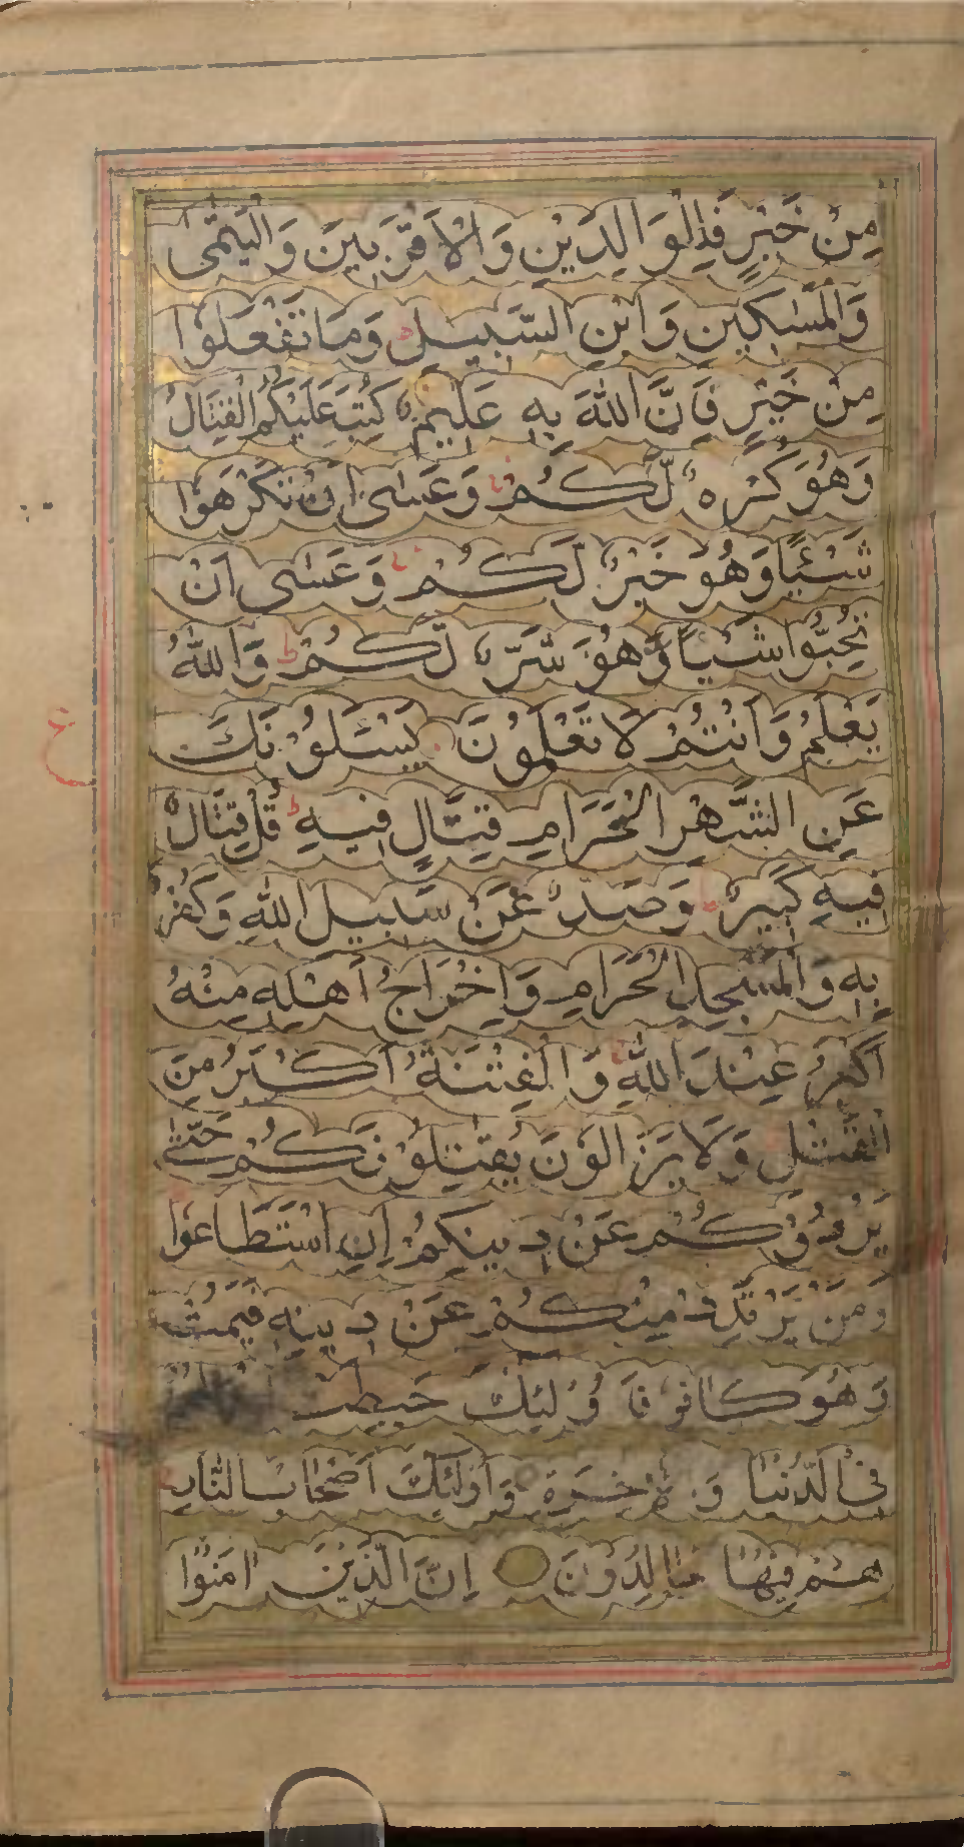 مِنْ خَيْرٍ فَلِلْوَالِدَيْنِ وَالْاَقْرَبِينَ وَالْيَتٰمٰى
وَالْمَسٰكِينِ وَابْنِ السَّبِيلِ ط وَمَا تَفْعَلُوْا
مِنْ خَيْرٍ فَاِنَّ اللّٰهَ بِهٖ عَلِيمٌ كُتِبَ عَلَيْكُمُ الْقِتَالُ
وَهُوَ كُرْهٌ لَّكُمْ وَعَسٰى اَنْ تَكْرَهُوْا
شَيْئًا وَهُوَ خَيْرٌ لَّكُمْ وَعَسٰى اَنْ
تُحِبُّوْا شَيْئًا وَّهُوَ شَرٌّ لَّكُمْ ط وَاللّٰهُ
يَعْلَمُ وَاَنْتُمْ لَا تَعْلَمُوْنَ يَسْـَٔلُوْنَكَ
عَنِ الشَّهْرِ الْحَرَامِ قِتَالٍ فِيهِ ط قُلْ قِتَالٌ
فِيهِ كَبِيرٌ ط وَصَدٌّ عَنْ سَبِيلِ اللّٰهِ وَكُفْرٌ
بِهٖ وَالْمَسْجِدِ الْحَرَامِ وَاِخْرَاجُ اَهْلِهٖ مِنْهُ
اَكْبَرُ عِنْدَ اللّٰهِ وَالْفِتْنَةُ اَكْبَرُ مِنَ
الْقَتْلِ وَلَا يَزَالُوْنَ يُقٰتِلُوْنَكُمْ حَتّٰى
يَرُدُّوْكُمْ عَنْ دِينِكُمْ اِنِ اسْتَطَاعُوْا
وَمَنْ يَرْتَدِدْ مِنْكُمْ عَنْ دِينِهٖ فَيَمُتْ
وَهُوَ كَافِرٌ فَاُولٰئِكَ حَبِطَتْ
فِى الدُّنْيَا وَالْاٰخِرَةِ وَاُولٰئِكَ اَصْحَابُ النَّارِ
هُمْ فِيهَا خَالِدُوْنَ اِنَّ الَّذِينَ اٰمَنُوْا
ع